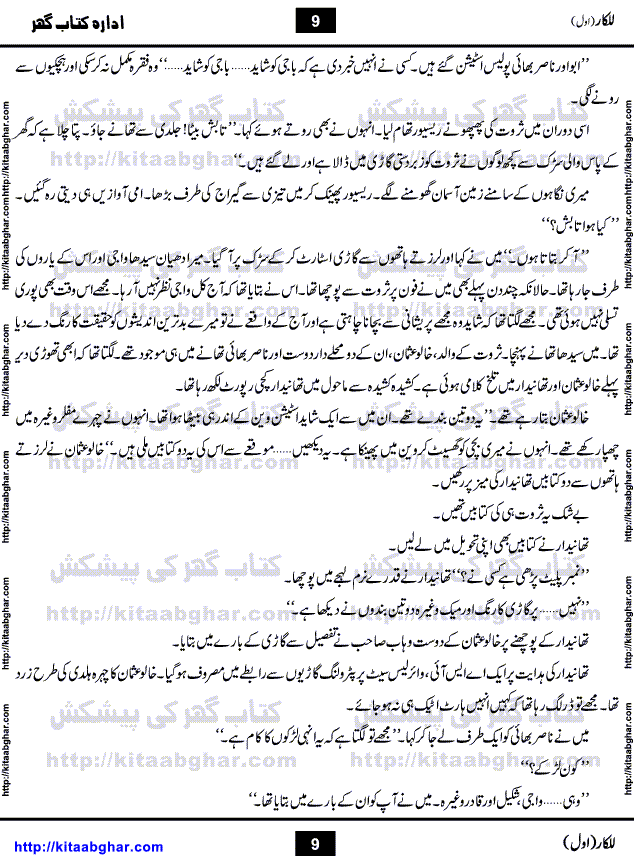 للکار (اول)
9
ادارہ کتاب گھر
’’ابو اور ناصر بھائی پولیس اسٹیشن گئے ہیں۔ کسی نے انہیں خبر دی ہے کہ باجی کو شاید...... باجی کو شاید.....‘‘ وہ فقرہ مکمل نہ کرسکی اور ہچکیوں سے
رونے لگی۔
اسی دوران میں ثروت کی پھوپھو نے ریسیور تھام لیا۔ انہوں نے بھی روتے ہوئے کہا۔ ’’تابش بیٹا! جلدی سے تھانے جاؤ۔ پتا چلا ہے کہ گھر
کے پاس والی سڑک سے کچھ لوگوں نے ثروت کو زبردستی گاڑی میں ڈالا ہے اور لے گئے ہیں۔‘‘
میری نگاہوں کے سامنے زمین آسمان گھومنے لگے۔ ریسیور پھینک کر میں تیزی سے گیراج کی طرف بڑھا۔ امی آوازیں ہی دیتی رہ گئیں۔
’’کیا ہوا تابش؟‘‘
’’آ کر بتاتا ہوں۔‘‘ میں نے کہا اور لرزتے ہاتھوں سے گاڑی اسٹارٹ کر کے سڑک پر آ گیا۔ میرا دھیان سیدھا واجی اور اس کے یاروں کی
طرف جا رہا تھا۔ حالانکہ چند دن پہلے بھی میں نے فون پر ثروت سے پوچھا تھا۔ اس نے بتایا تھا کہ آج کل واجی نظر نہیں آ رہا۔ مجھے اس وقت بھی پوری
تسلی نہیں ہوئی تھی۔ مجھے لگتا تھا کہ شاید وہ مجھے پریشانی سے بچانا چاہتی ہے اور آج کے واقعے نے تو میرے بدترین اندیشوں کو حقیقت کا رنگ دے دیا
تھا۔ میں سیدھا تھانے پہنچا۔ ثروت کے والد، خالو عثمان، ان کے دو محلے دار دوست اور ناصر بھائی تھانے میں ہی موجود تھے۔ لگتا تھا کہ ابھی تھوڑی دیر
پہلے خالو عثمان اور تھانیدار میں تلخ کلامی ہوئی ہے۔ کشیدہ کشیدہ سے ماحول میں تھانیدار کچی رپورٹ لکھ رہا تھا۔
خالو عثمان بتا رہے تھے۔ ’’یہ دو تین بندے تھے۔ ان میں سے ایک شاید اسٹیشن وین کے اندر ہی بیٹھا ہوا تھا۔ انہوں نے چہرے مفلر وغیرہ میں
چھپا رکھے تھے۔ انہوں نے میری بچی کو گھسیٹ کر وین میں پھینکا ہے۔ یہ دیکھیں...... موقعے سے اس کی یہ دو کتابیں ملی ہیں۔‘‘ خالو عثمان نے لرزتے
ہاتھوں سے دو کتابیں تھانیدار کی میز پر رکھیں۔
بے شک یہ ثروت ہی کی کتابیں تھیں۔
تھانیدار نے کتابیں بھی اپنی تحویل میں لے لیں۔
’’نمبر پلیٹ پڑھی ہے کسی نے؟‘‘ تھانیدار نے قدرے نرم لہجے میں پوچھا۔
’’نہیں...... پر گاڑی کا رنگ اور میک وغیرہ دو تین بندوں نے دیکھا ہے۔‘‘
تھانیدار کے پوچھنے پر خالو عثمان کے دوست وہاب صاحب نے تفصیل سے گاڑی کے بارے میں بتایا۔
تھانیدار کی ہدایت پر ایک اے ایس آئی، وائرلیس سیٹ پر پٹرولنگ گاڑیوں سے رابطے میں مصروف ہو گیا۔ خالو عثمان کا چہرہ ہلدی کی طرح زرد
تھا۔ مجھے تو ڈر لگ رہا تھا کہ کہیں انہیں ہارٹ اٹیک ہی نہ ہو جائے۔
میں نے ناصر بھائی کو ایک طرف لے جا کر کہا۔ ’’مجھے تو لگتا ہے کہ یہ انہی لڑکوں کا کام ہے۔‘‘
’’کون لڑکے؟‘‘
’’وہی...... واجی، شکیل اور قادر وغیرہ۔ میں نے آپ کو ان کے بارے میں بتایا تھا۔‘‘
http://kitaabghar.com
9
للکار (اول)